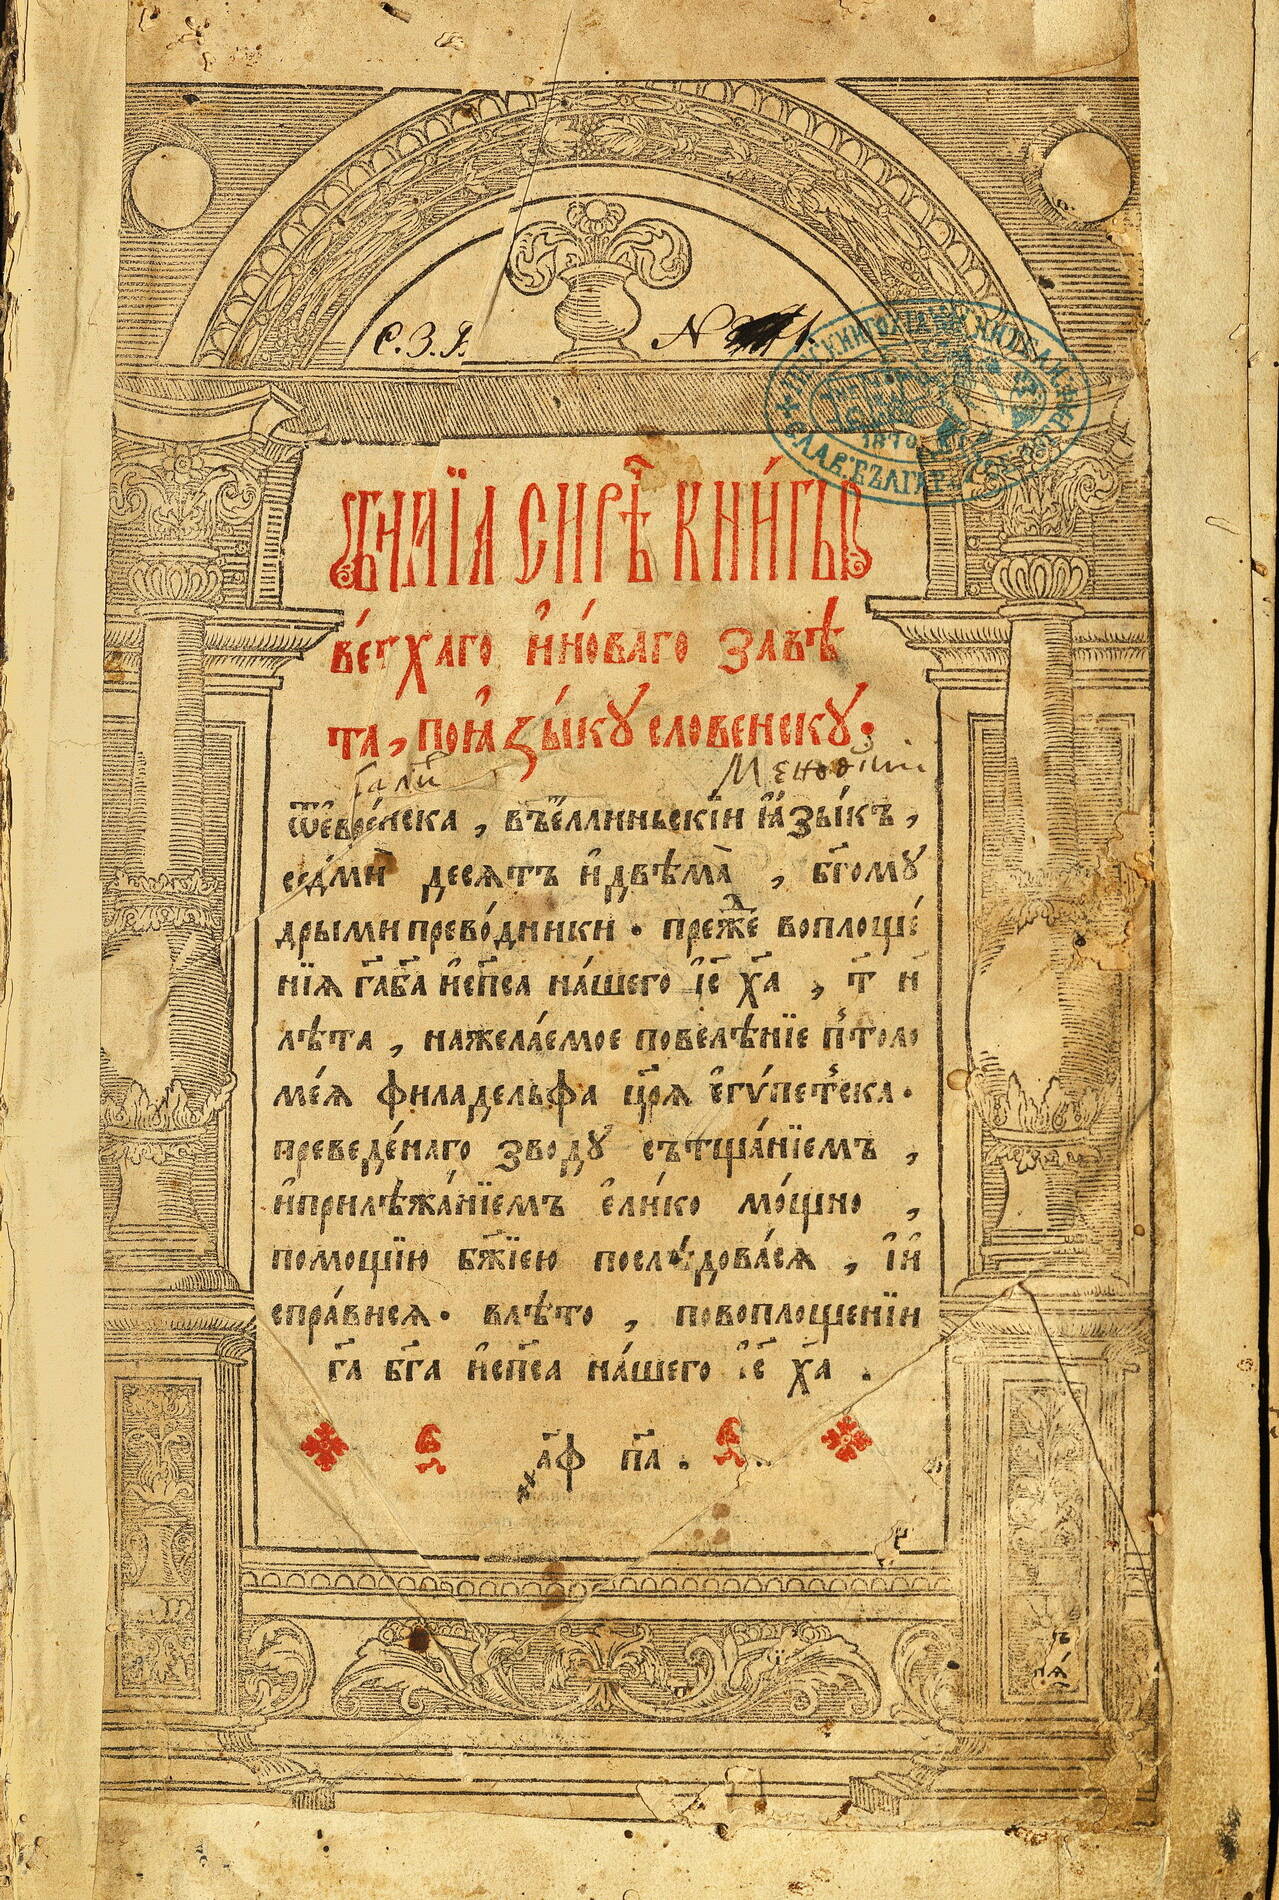 С. З. І. N 1.
БИБЛЇА СИРѢ КНИ́ГЫ
ВЕ́ТХАГО И҆НО́ВАГО ЗАВѢ
ТА, ПОꙖ҆ЗЫ́КУ СЛОВЕНСКУ.
ѿе҆вре́йска , въе҆ллиньскїи ꙗ҆зы́къ ,
се́дмиⷭ десятъ и҆двѣма̀ , бг҃ому́
дрыми прево́дники . преⷤде воплоще́
нїя гⷭ҇а бг҃а и҆сп҃са на́шего і҆с҃ х҃а , т҃ и҃
лѣта , нажела́емое повелѣ́нїе п̾толо
ме́я филадельфа цр҃я е҆гѵ́петъска .
преведе́наго зводу́ сътща́нїемъ ,
и҆прилѣжа́нїемъ е҆ли́ко мо́щно ,
помощїю бж҃їею послѣ́довася , и҆и҆
спра́вися . влѣ́то , повоплощенїи
гⷭ҇а бг҃а и҆сп҃са на́шего і҆с҃ х҃а .
҂а҃ф п҃а .